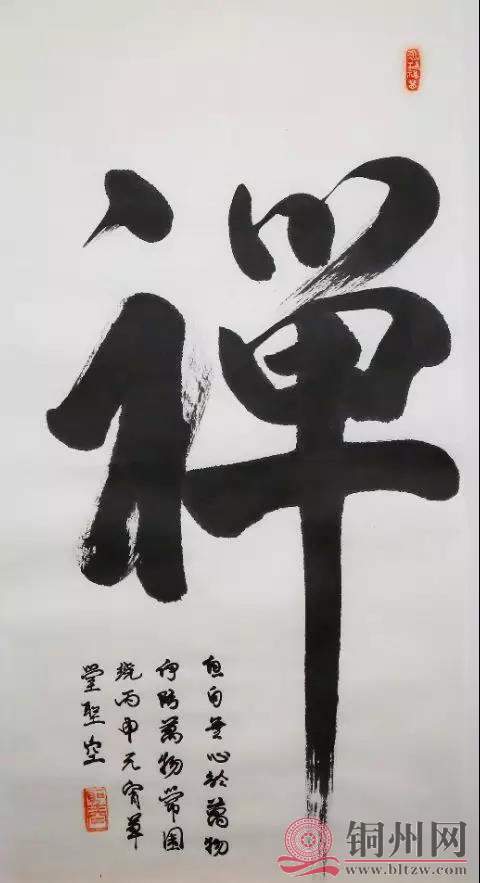 禅
但自無心於萬物
何妨萬物常圍
繞丙申元宵草
堂聖空
铜州网
www.bltzw.com